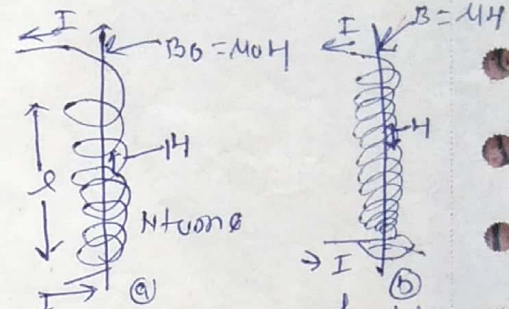 I
B0 = μ0H
H
l
N turns
I
a
I
B = μH
H
→ I
b